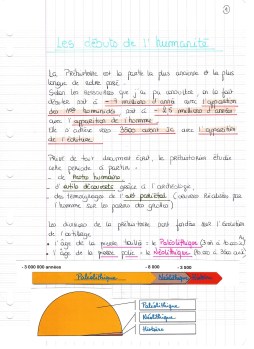 ①
Les débuts de l'humanité
La Préhistoire est la partie la plus ancienne et la plus
longue de notre passé.
Selon les ressources que j'ai pu consulter, on la fait
débuter soit à - 7 millions d'années avec l'apparition
des 1ers hominidés soit à - 2,5 millions d'années
avec l'apparition de l'homme.
Elle s'achève vers 3500 avant JC avec l'apparition
de l'écriture.
Privé de tout document écrit, le préhistorien étudie
cette période à partir :
- de restes humains
- d'outils découverts grâce à l'archéologie,
- des témoignages de l'art pariétal (œuvres réalisées par
l'homme sur les parois des grottes)
Les divisions de la préhistoire sont fondées sur l'évolution
de l'outillage.
• l'âge de la pierre taillée : le Paléolithique
• l'âge de la pierre polie : le Néolithique
- 3 000 000 années - 6 000 - 3 000
Paléolithique Néolithique Histoire
Paléolithique
Néolithique
Histoire